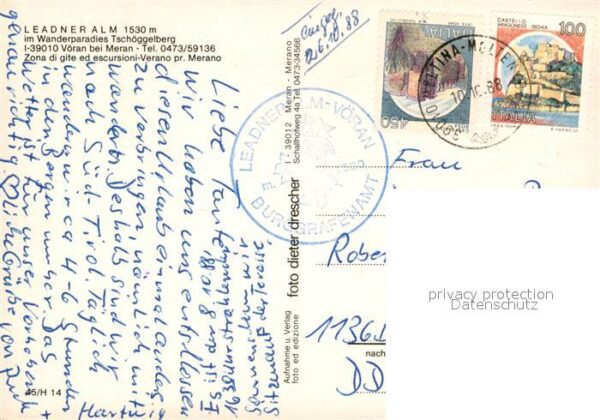 LEADNER ALM 1530 m
im Wanderparadies Tschögglberg
I-39010 Vöran bei Meran - Tel. 0473/59136
Zona di gite ed escursioni-Verano pr. Merano
26.10.88
ITALIA
450
CASTELLO ARAGONESE ISCHIA
100
ITALIA
MELTINA-MÖLTEN
10.88
LEADNER-ALM-VÖRAN
BURGGRAFENAMT
I - 39012 Meran - Merano
Schallhofweg 4a Tel. 0473-34566
foto dieter drescher
Aufnahme u. Verlag
foto ed edizione
nach
Liebe Tante
wir haben uns entschlossen
diesen Urlaub einmal anders
zu verbringen, nämlich mit
wandern. Deshalb sind wir
nach Süd-Tirol. Täglich
wandern wir ca 4-6 Stunden
in den Bergen umher. Das
Wetter ist für unser Vorhaben
genau richtig. Grüße von
Sonnenstrahlen
Sitzen auf der Terasse.
Frau
Rober
1136
DD
45/H 14
privacy protection
Datenschutz